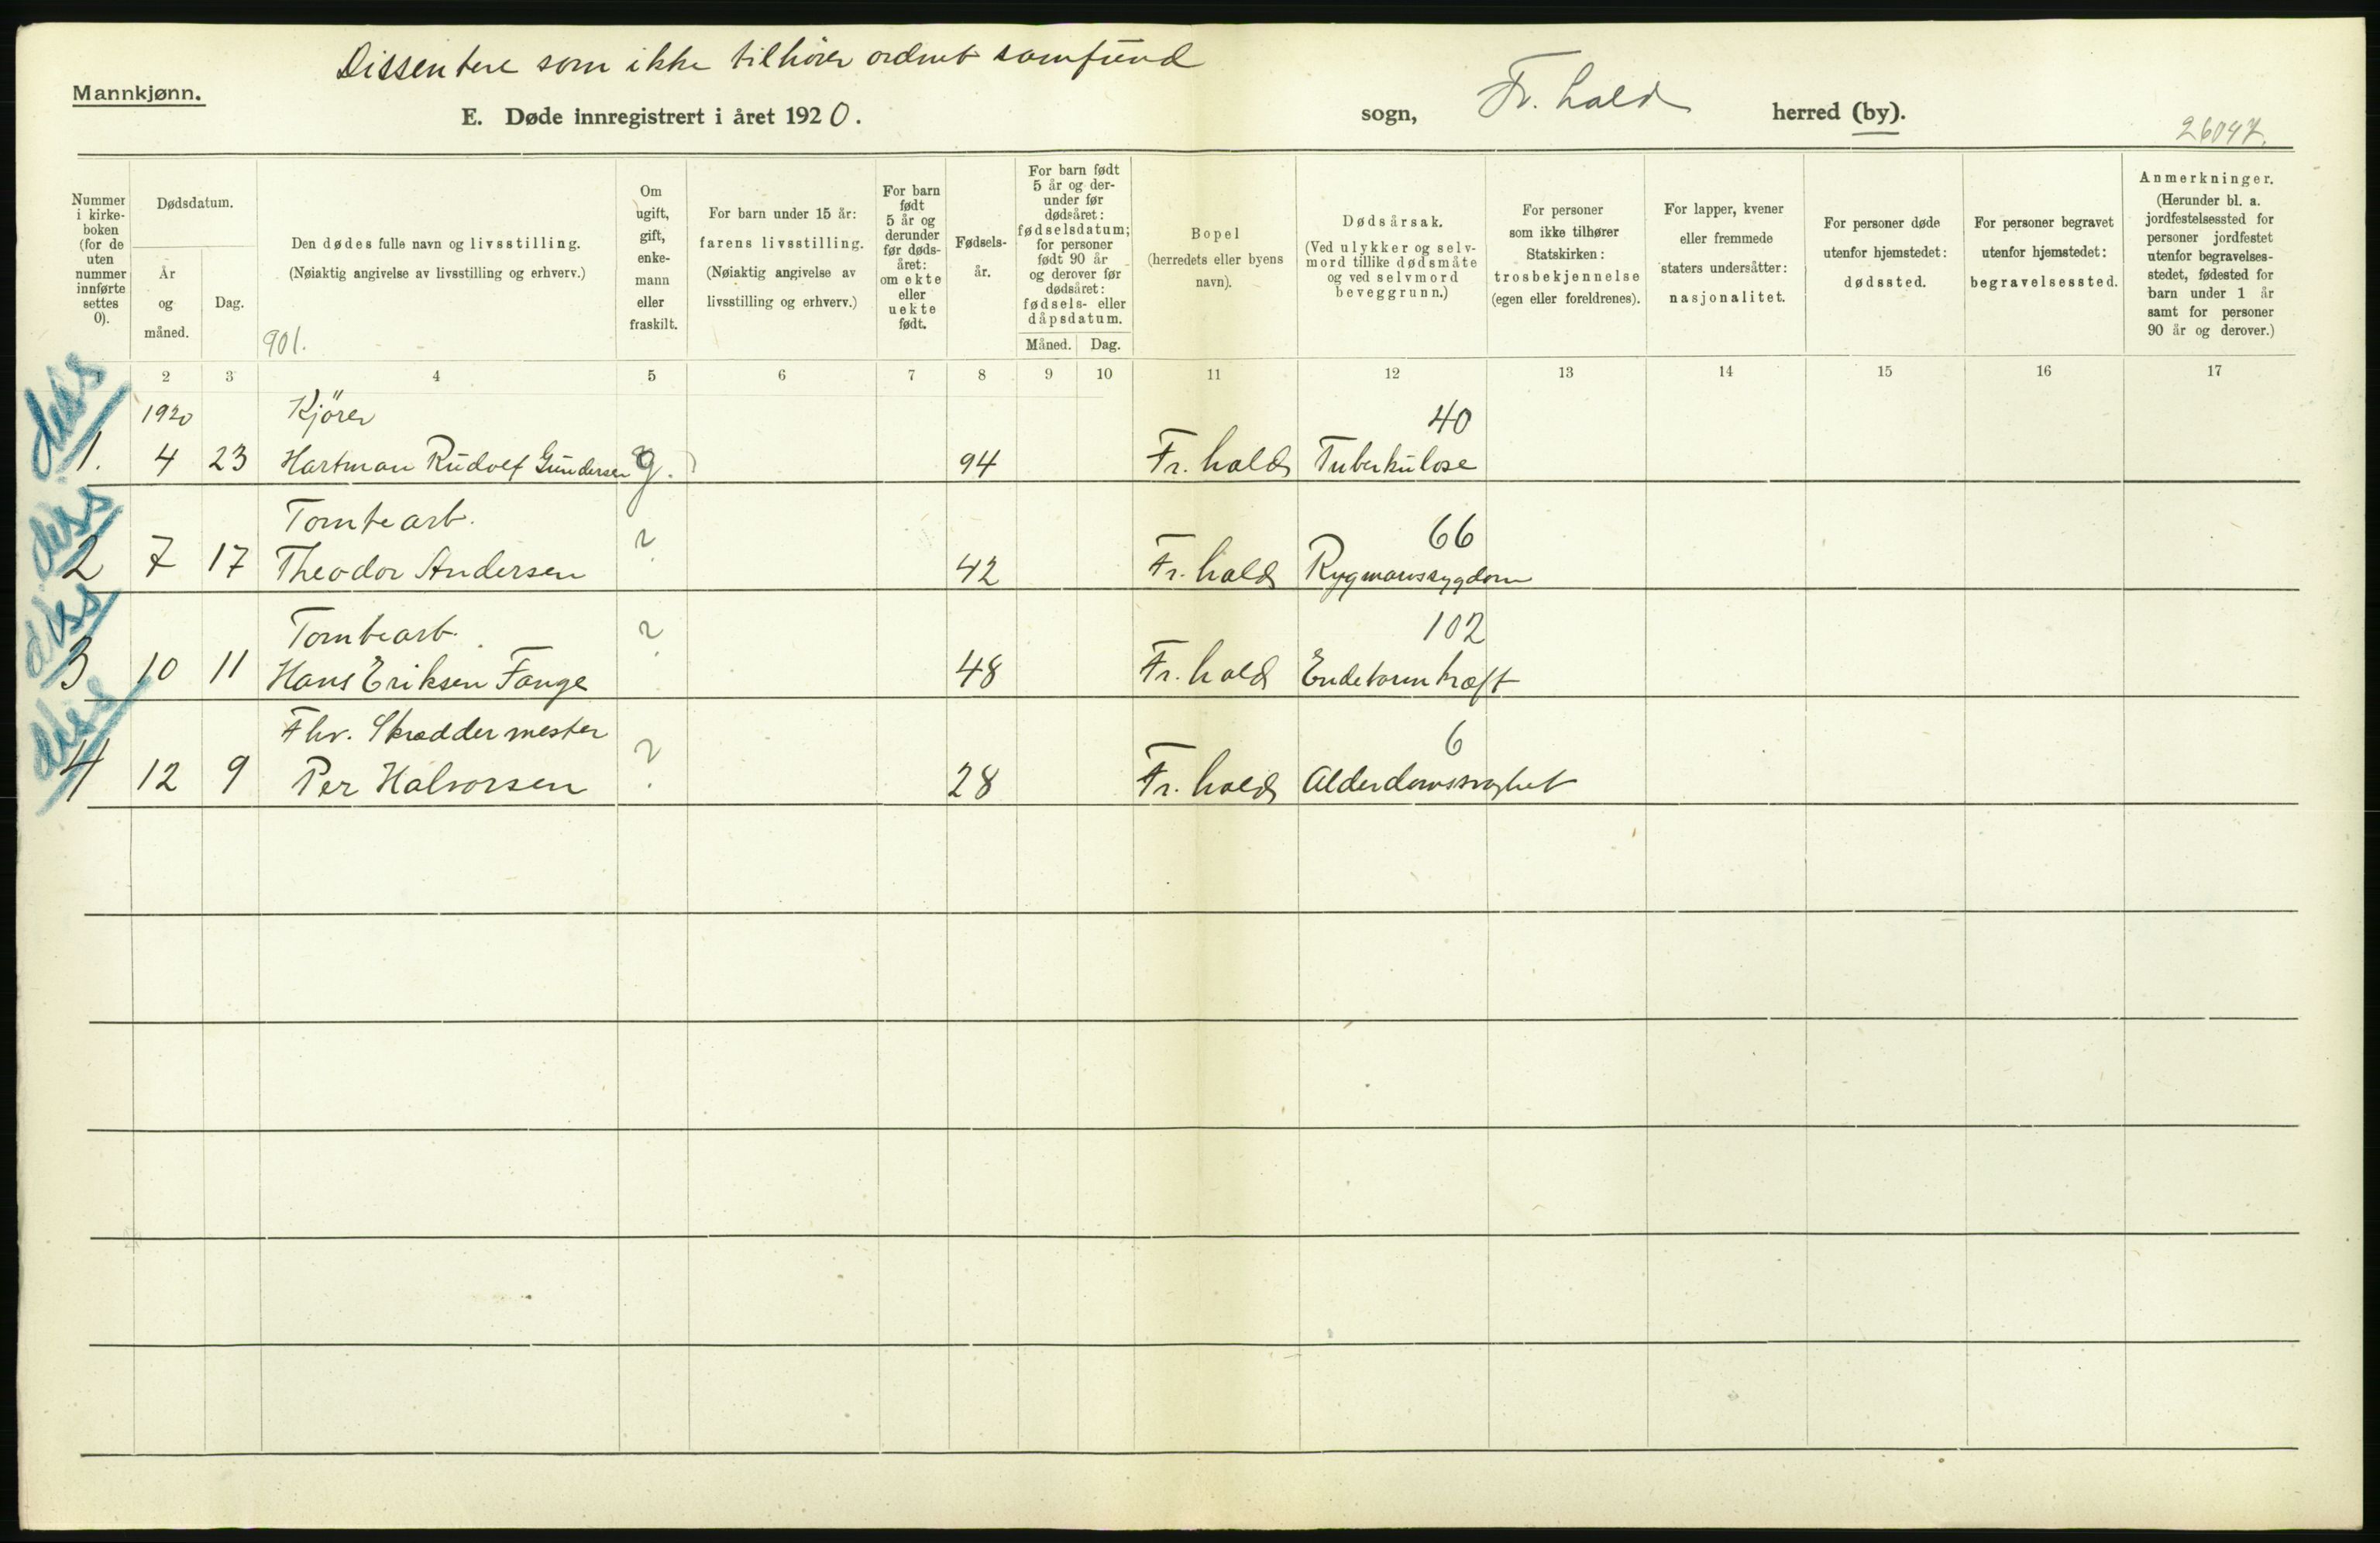 Dissentere som ikke tilhører ordnet samfund
Mannkjønn.
E. Døde innregistrert i året 1920.
sogn, Fr. hald herred (by).
26047.
Nummer i kirke-boken (for de uten nummer innførte settes 0).
Dødsdatum.
År og måned.
Dag.
Den dødes fulle navn og livsstilling.
(Nøiaktig angivelse av livsstilling og erhverv.)
901.
Om ugift, gift, enke-mann eller fraskilt.
For barn under 15 år:
farens livsstilling.
(Nøiaktig angivelse av livsstilling og erhverv.)
For barn født 5 år og derunder før døds-året: om ekte eller uekte født.
Fødsels-år.
For barn født 5 år og der-under før dødsåret: fødselsdatum; for personer født 90 år og derover før dødsåret: fødsels- eller dåpsdatum.
Måned.
Dag.
Bopel
(herredets eller byens navn).
Dødsårsak.
(Ved ulykker og selv-mord tillike dødsmåte og ved selvmord beveggrunn.)
For personer som ikke tilhører Statskirken: trosbekjennelse (egen eller foreldrenes).
For lapper, kvener eller fremmede staters undersåtter: nasjonalitet.
For personer døde utenfor hjemstedet: dødssted.
For personer begravet utenfor hjemstedet: begravelsessted.
Anmerkninger.
(Herunder bl. a. jordfestelsessted for personer jordfestet utenfor begravelses-stedet, fødested for barn under 1 år samt for personer 90 år og derover.)
1 2 3 4 5 6 7 8 9 10 11 12 13 14 15 16 17
diss
1920 Kjörer 40
1. 4 23 Hartman Rudolf Gundersen g. ? 94 Fr. hald Tuberkulose
diss
Tomtearb. ? 66
2 7 17 Theodor Andersen 42 Fr. hald Rygmarvssygdom
diss
Tomtearb. ? 102
3 10 11 Hans Eriksen Fange 48 Fr. hald Endetarmkræft
diss
Fhv. Skræddermester ? 6
4 12 9 Per Halvorsen 28 Fr. hald Alderdomssvaghet